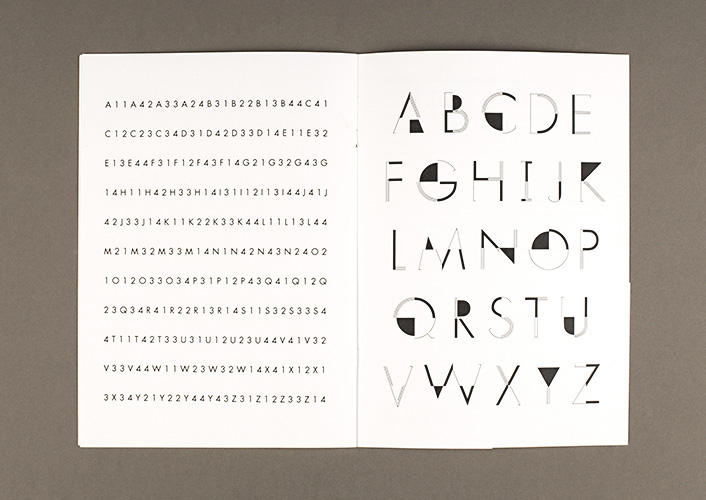 A11A42A33A24B31B22B13B44C41
C12C23C34D31D42D33D14E11E32
E13E44F31F12F43F14G21G32G43G
14H11H42H33H14I31I12I13I44J41J
42J33J14K11K22K33K44L11L13L44
M21M32M33M14N1N42N43N24O2
1O12O33O34P31P12P43Q41Q12Q
23Q34R41R22R13R14S11S32S33S4
4T11T42T33U31U12U23U44V41V32
V33V44W11W23W32W14X41X12X1
3X34Y21Y22Y44Y43Z31Z12Z33Z14
ABCDE
FGHIJK
LMNOP
QRSTU
VWXYZ